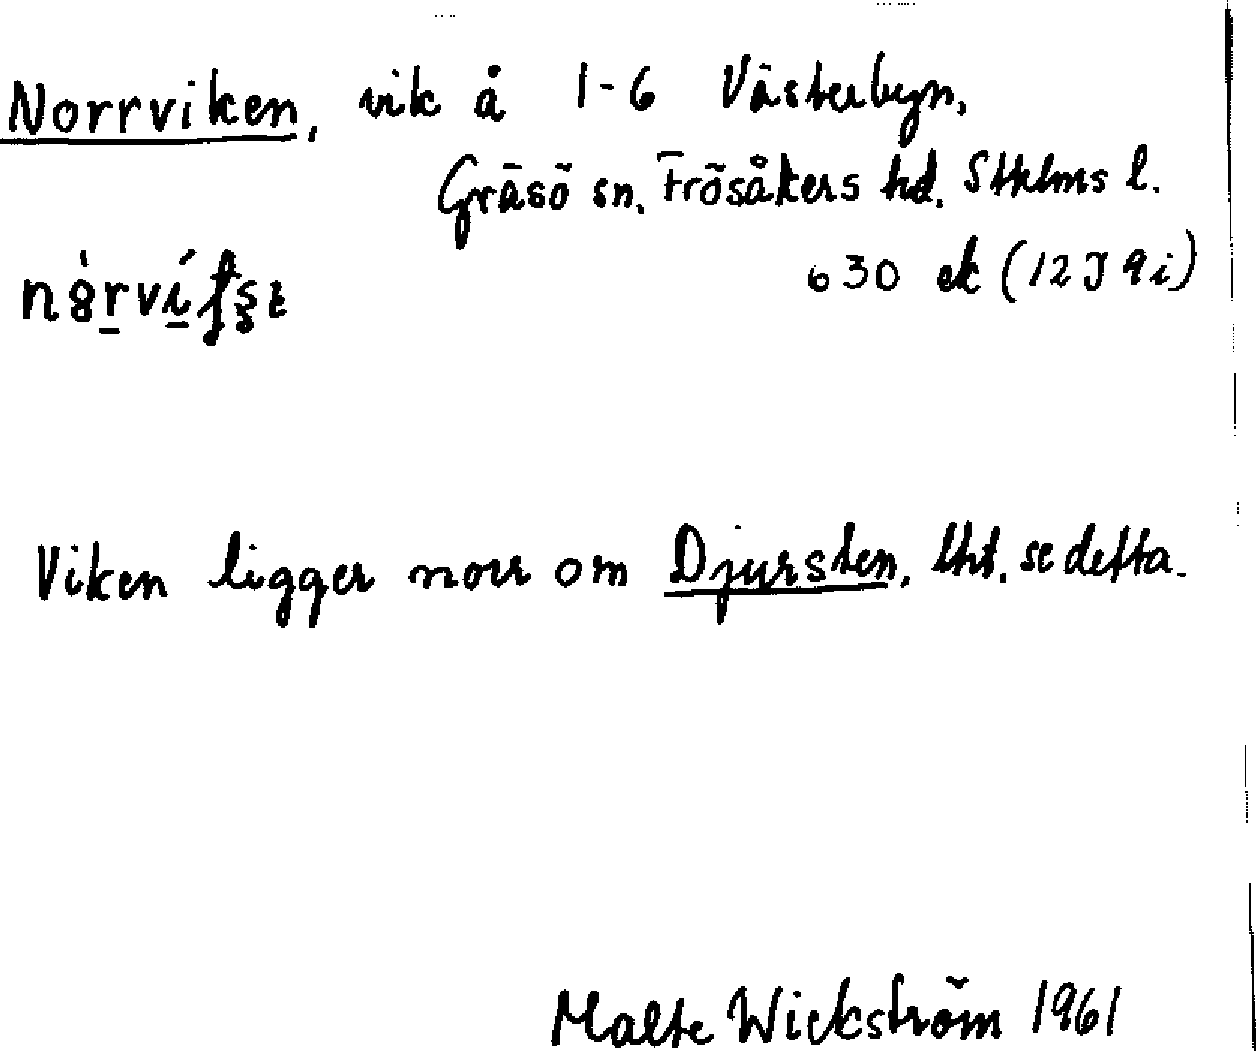 Norrviken, vik å 1-6 Västerbyn,
Gräsö sn. Frösåkers hd. Sthlms l.
630 ek (12J 9i)
Viken ligger norr om Djursten, tht. se detta.
Malte Wickström 1961